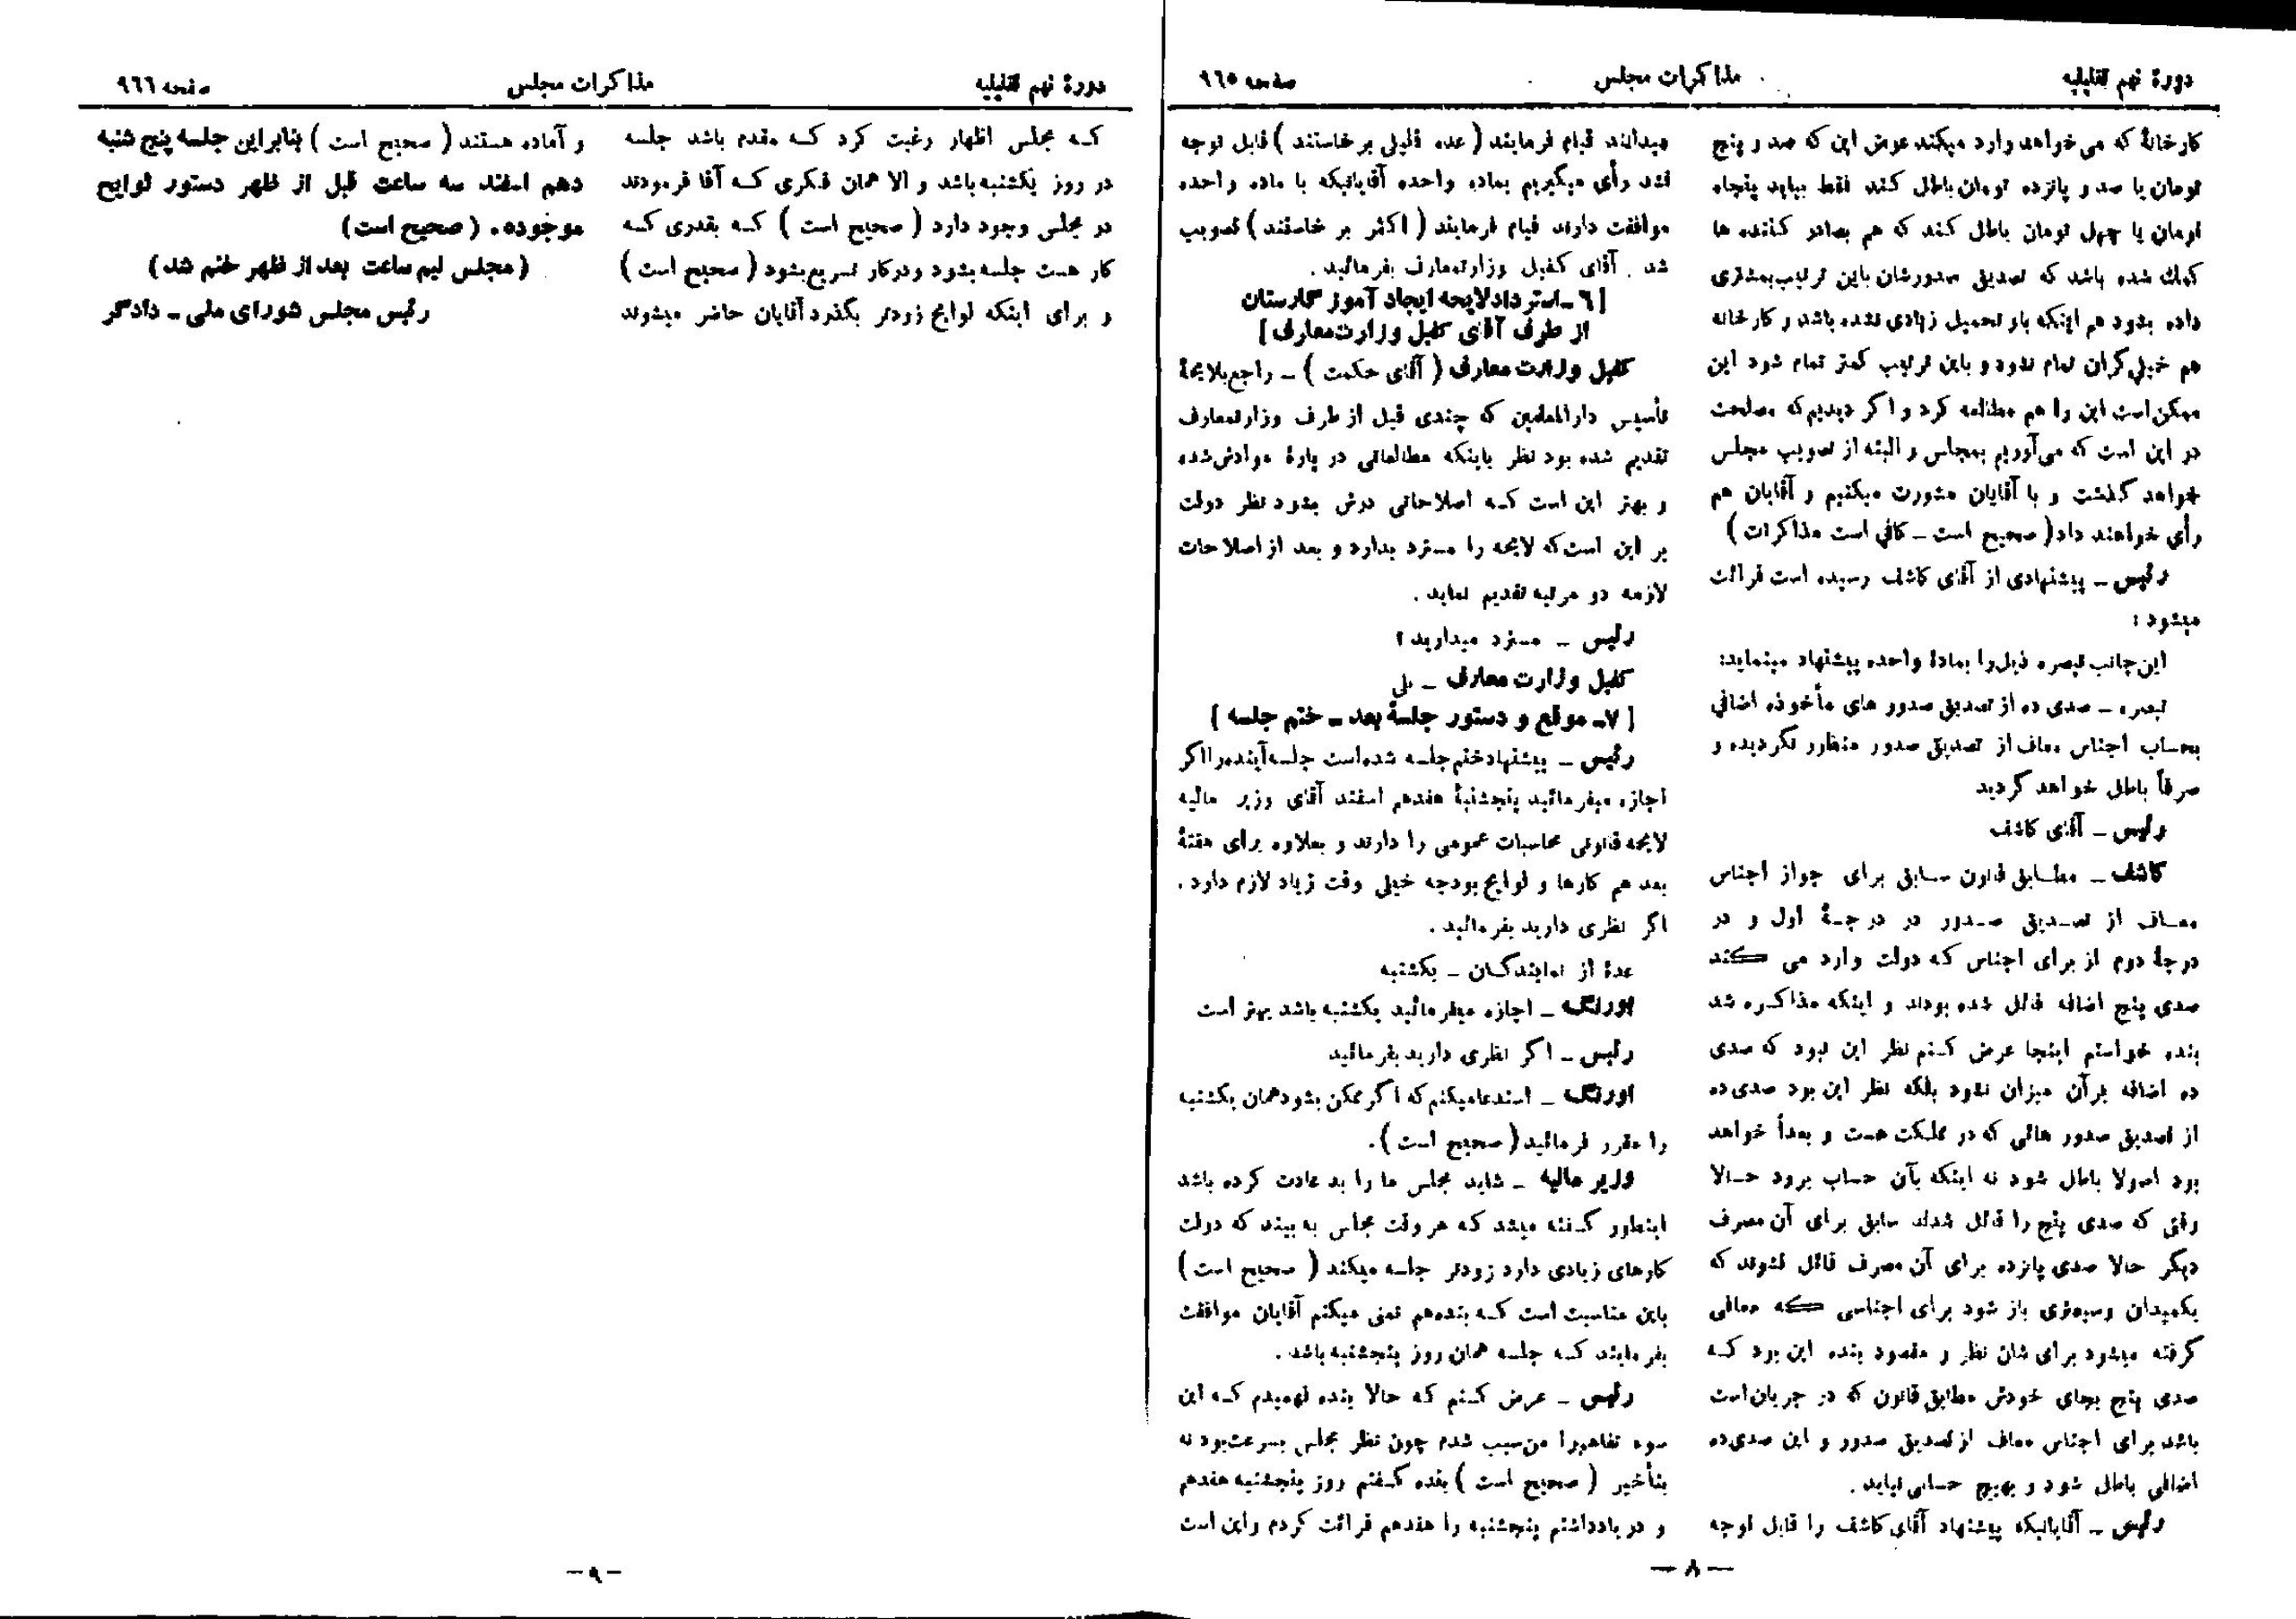 دورهٔ نهم تقنینیه
مذاکرات مجلس
صفحه ۹٦٥
کارخانهٔ که می‌خواهد وارد میکند عوض این که صد و پنج
تومان یا صد و پانزده تومان باطل کند فقط بیاید پنجاه
تومان یا چهل تومان باطل کند که هم بصادر کننده ها
کمك شده باشد که تصدیق صدورشان باین ترتیب بمشتری
داده بشود هم اینکه بار تحمیل زیادی نشده باشد و کارخانه
هم خیلی گران تمام نشود و باین ترتیب کمتر تمام شود این
ممکن است این را هم مطالعه کرد و اگر دیدیم که مصلحت
در این است که می‌آوریم بمجلس و البته از تصویب مجلس
خواهد گذشت و با آقایان مشورت میکنیم و آقایان هم
رأی خواهند داد ( صحیح است ـ کافی است مذاکرات )
رئیس ـ پیشنهادی از آقای کاشف رسیده است قرائت
میشود :
این جانب تبصره ذیل را بمادهٔ واحده پیشنهاد مینماید:
تبصره ـ صدی ده از تصدیق صدور های مأخوذه اضافی
بحساب اجناس معاف از تصدیق صدور منظور نگردیده و
صرفاً باطل خواهد گردید
رئیس ـ آقای کاشف
کاشف ـ مطابق قانون سابق برای جواز اجناس
معاف از تصدیق صدور در درجهٔ اول و در
درجهٔ دوم از برای اجناس که دولت وارد می کند
صدی پنج اضافه قائل شده بودند و اینکه مذاکره شد
بنده خواستم اینجا عرض کنم نظر این نبود که صدی
ده اضافه برآن میزان نشود بلکه نظر این بود صدی ده
از تصدیق صدور هائی که در مملکت هست و بعداً خواهد
بود اصولا باطل شود نه اینکه بآن حساب برود حالا
وقتی که صدی پنج را قائل شدند سابق برای آن مصرف
دیگر حالا صدی پانزده برای آن مصرف قائل نشوند که
یکمیدان وسیعتری باز شود برای اجناسی که معافی
گرفته میشود برای شان نظر و مقصود بنده این بود که
صدی پنج بجای خودش مطابق قانون که در جریان است
باشد برای اجناس معاف از تصدیق صدور و این صدی ده
اضافی باطل شود و بهیچ حسابی نیاید .
رئیس ـ آقایانیکه پیشنهاد آقای کاشف را قابل توجه
میدانند قیام فرمایند ( عده قلیلی برخاستند ) قابل توجه
نشد رأی میگیریم بماده واحده آقایانیکه با ماده واحده
موافقت دارند قیام فرمایند ( اکثر بر خاستند ) تصویب
شد . آقای کفیل وزارتمعارف بفرمائید .
[ ٦ ـ استرداد لایحه ایجاد آموزگارستان
از طرف آقای کفیل وزارت معارف ]
کفیل وزارت معارف ( آقای حکمت ) ـ راجع بلایحهٔ
تأسیس دارالمعلمین که چندی قبل از طرف وزارتمعارف
تقدیم شده بود نظر باینکه مطالعاتی در بارهٔ موادش شده
و بهتر این است که اصلاحاتی درش بشود نظر دولت
بر این است که لایحه را مسترد بدارد و بعد از اصلاحات
لازمه دو مرتبه تقدیم نماید .
رئیس ـ مسترد میدارید ؟
کفیل وزارت معارف ـ بلی
[ ۷ـ موقع و دستور جلسهٔ بعد ـ ختم جلسه ]
رئیس ـ پیشنهاد ختم جلسه شده‌است جلسه آینده را اگر
اجازه میفرمائید پنجشنبهٔ هفدهم اسفند آقای وزیر مالیه
لایحه قانونی محاسبات عمومی را دارند و بعلاوه برای هفتهٔ
بعد هم کارها و لوایح بودجه خیلی وقت زیاد لازم دارد .
اگر نظری دارید بفرمائید .
عدهٔ از نمایندگان ـ یکشنبه
اورنگ ـ اجازه میفرمائید یکشنبه باشد بهتر است
رئیس ـ اگر نظری دارید بفرمائید
اورنگ ـ استدعا میکنم که اگر ممکن بشود همان یکشنبه
را مقرر فرمائید ( صحیح است ) .
وزیر مالیه ـ شاید مجلس ما را بد عادت کرده باشد
اینطور گفته میشد که هر وقت مجلس به بیند که دولت
کارهای زیادی دارد زودتر جلسه میکند ( صحیح است )
باین مناسبت است که بنده‌هم تمنی میکنم آقایان موافقت
بفرمایند که جلسه همان روز پنجشنبه باشد .
رئیس ـ عرض کنم که حالا بنده فهمیدم که این
سوء تفاهم را من سبب شدم چون نظر مجلس بسرعت بود نه
بتأخیر ( صحیح است ) بنده گفتم روز پنجشنبه هفدهم
و در یادداشتم پنجشنبه را هفدهم قرائت کردم و این است
— ۸ —
دورهٔ نهم تقنینیه
مذاکرات مجلس
صفحه ۹٦٦
که مجلس اظهار رغبت کرد که مقدم باشد جلسه
در روز یکشنبه باشد و الا همان فکری که آقا فرمودند
در مجلس وجود دارد ( صحیح است ) که بقدری که
کار هست جلسه بشود و درکار تسریع بشود ( صحیح است )
و برای اینکه لوایح زودتر بگذرد آقایان حاضر میشوند
و آماده هستند ( صحیح است ) بنابراین جلسه پنج شنبه
دهم اسفند سه ساعت قبل از ظهر دستور لوایح
موجوده . ( صحیح است )
( مجلس نیم ساعت بعد از ظهر ختم شد )
رئیس مجلس شورای ملی ـ دادگر
— ۹ —